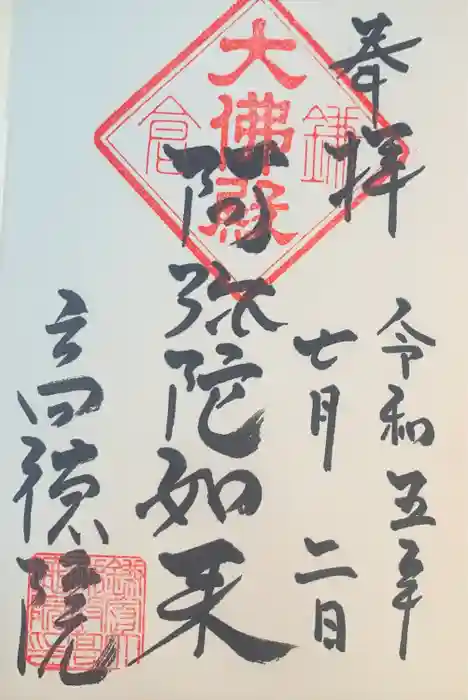 奉拝
令和五年
七月二日
大佛殿
鎌倉
阿弥陀如来
高徳院